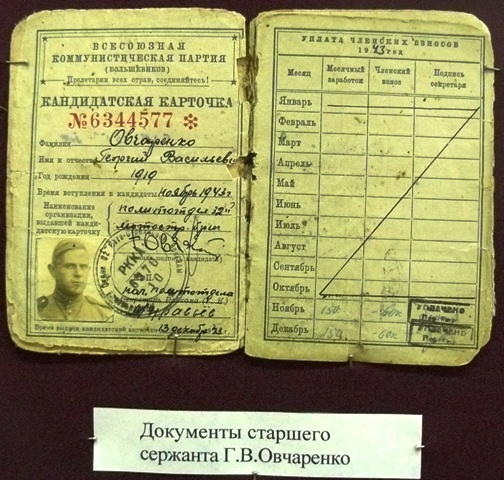 ВСЕСОЮЗНАЯ
КОММУНИСТИЧЕСКАЯ ПАРТИЯ
(БОЛЬШЕВИКОВ)
Пролетарии всех стран, соединяйтесь!
КАНДИДАТСКАЯ КАРТОЧКА
№6344577 *
Фамилия Овчаренко
Имя и отчество Георгий Васильеви
Год рождения 1919
Время вступления в кандидаты ноябрь 1943 г
Наименование
организации,
выдавшей канди-
датскую карточку
политотдел 32й
подпись кандидата
М.П.
нач. политотдела
Муравьёв
Время выдачи кандидатской карточки 13 декабр 43 г.
УПЛАТА ЧЛЕНСКИХ ВЗНОСОВ
1943 год
Месяц Месячный заработок Членский взнос Подпись секретаря
Январь
Февраль
Март
Апрель
Май
Июнь
Июль
Август
Сентябрь
Октябрь
Ноябрь 154 60к УПЛАЧЕНО
Декабрь 154 60к УПЛАЧЕНО
Документы старшего
сержанта Г.В.Овчаренко